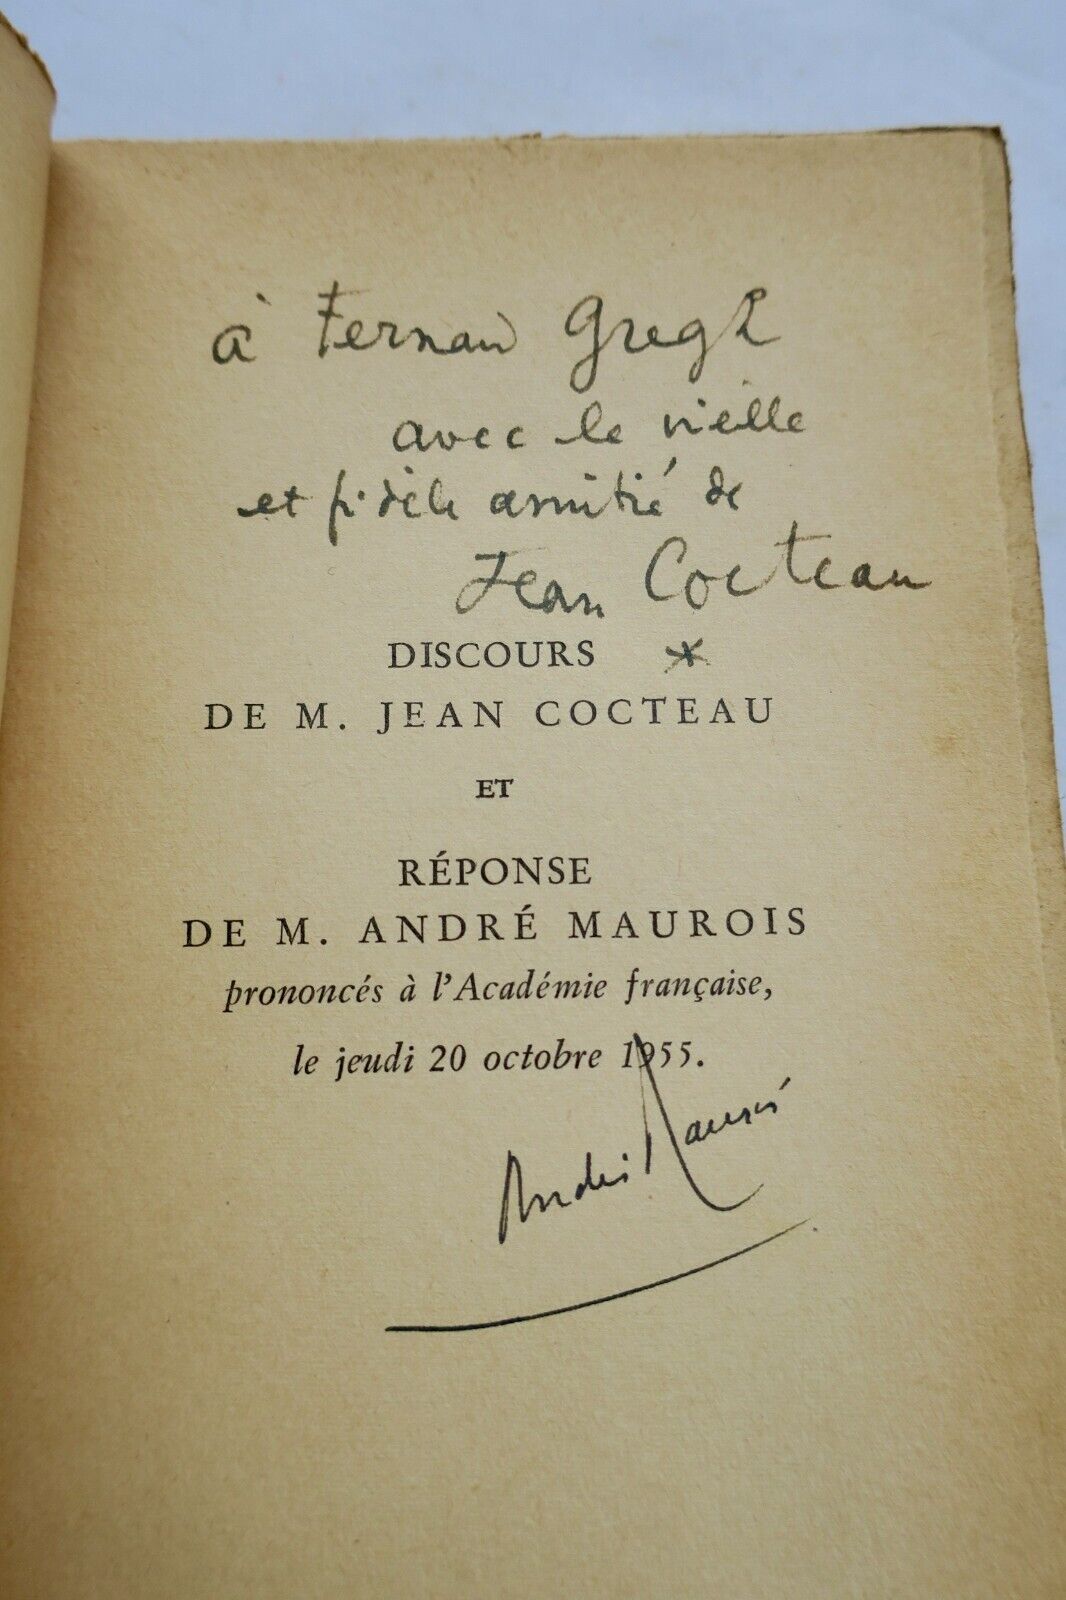 à Fernand Gregh
avec le vieille
et fidèle amitié de
Jean Cocteau
*
DISCOURS
DE M. JEAN COCTEAU
ET
RÉPONSE
DE M. ANDRÉ MAUROIS
prononcés à l'Académie française,
le jeudi 20 octobre 1955.
André Maurois